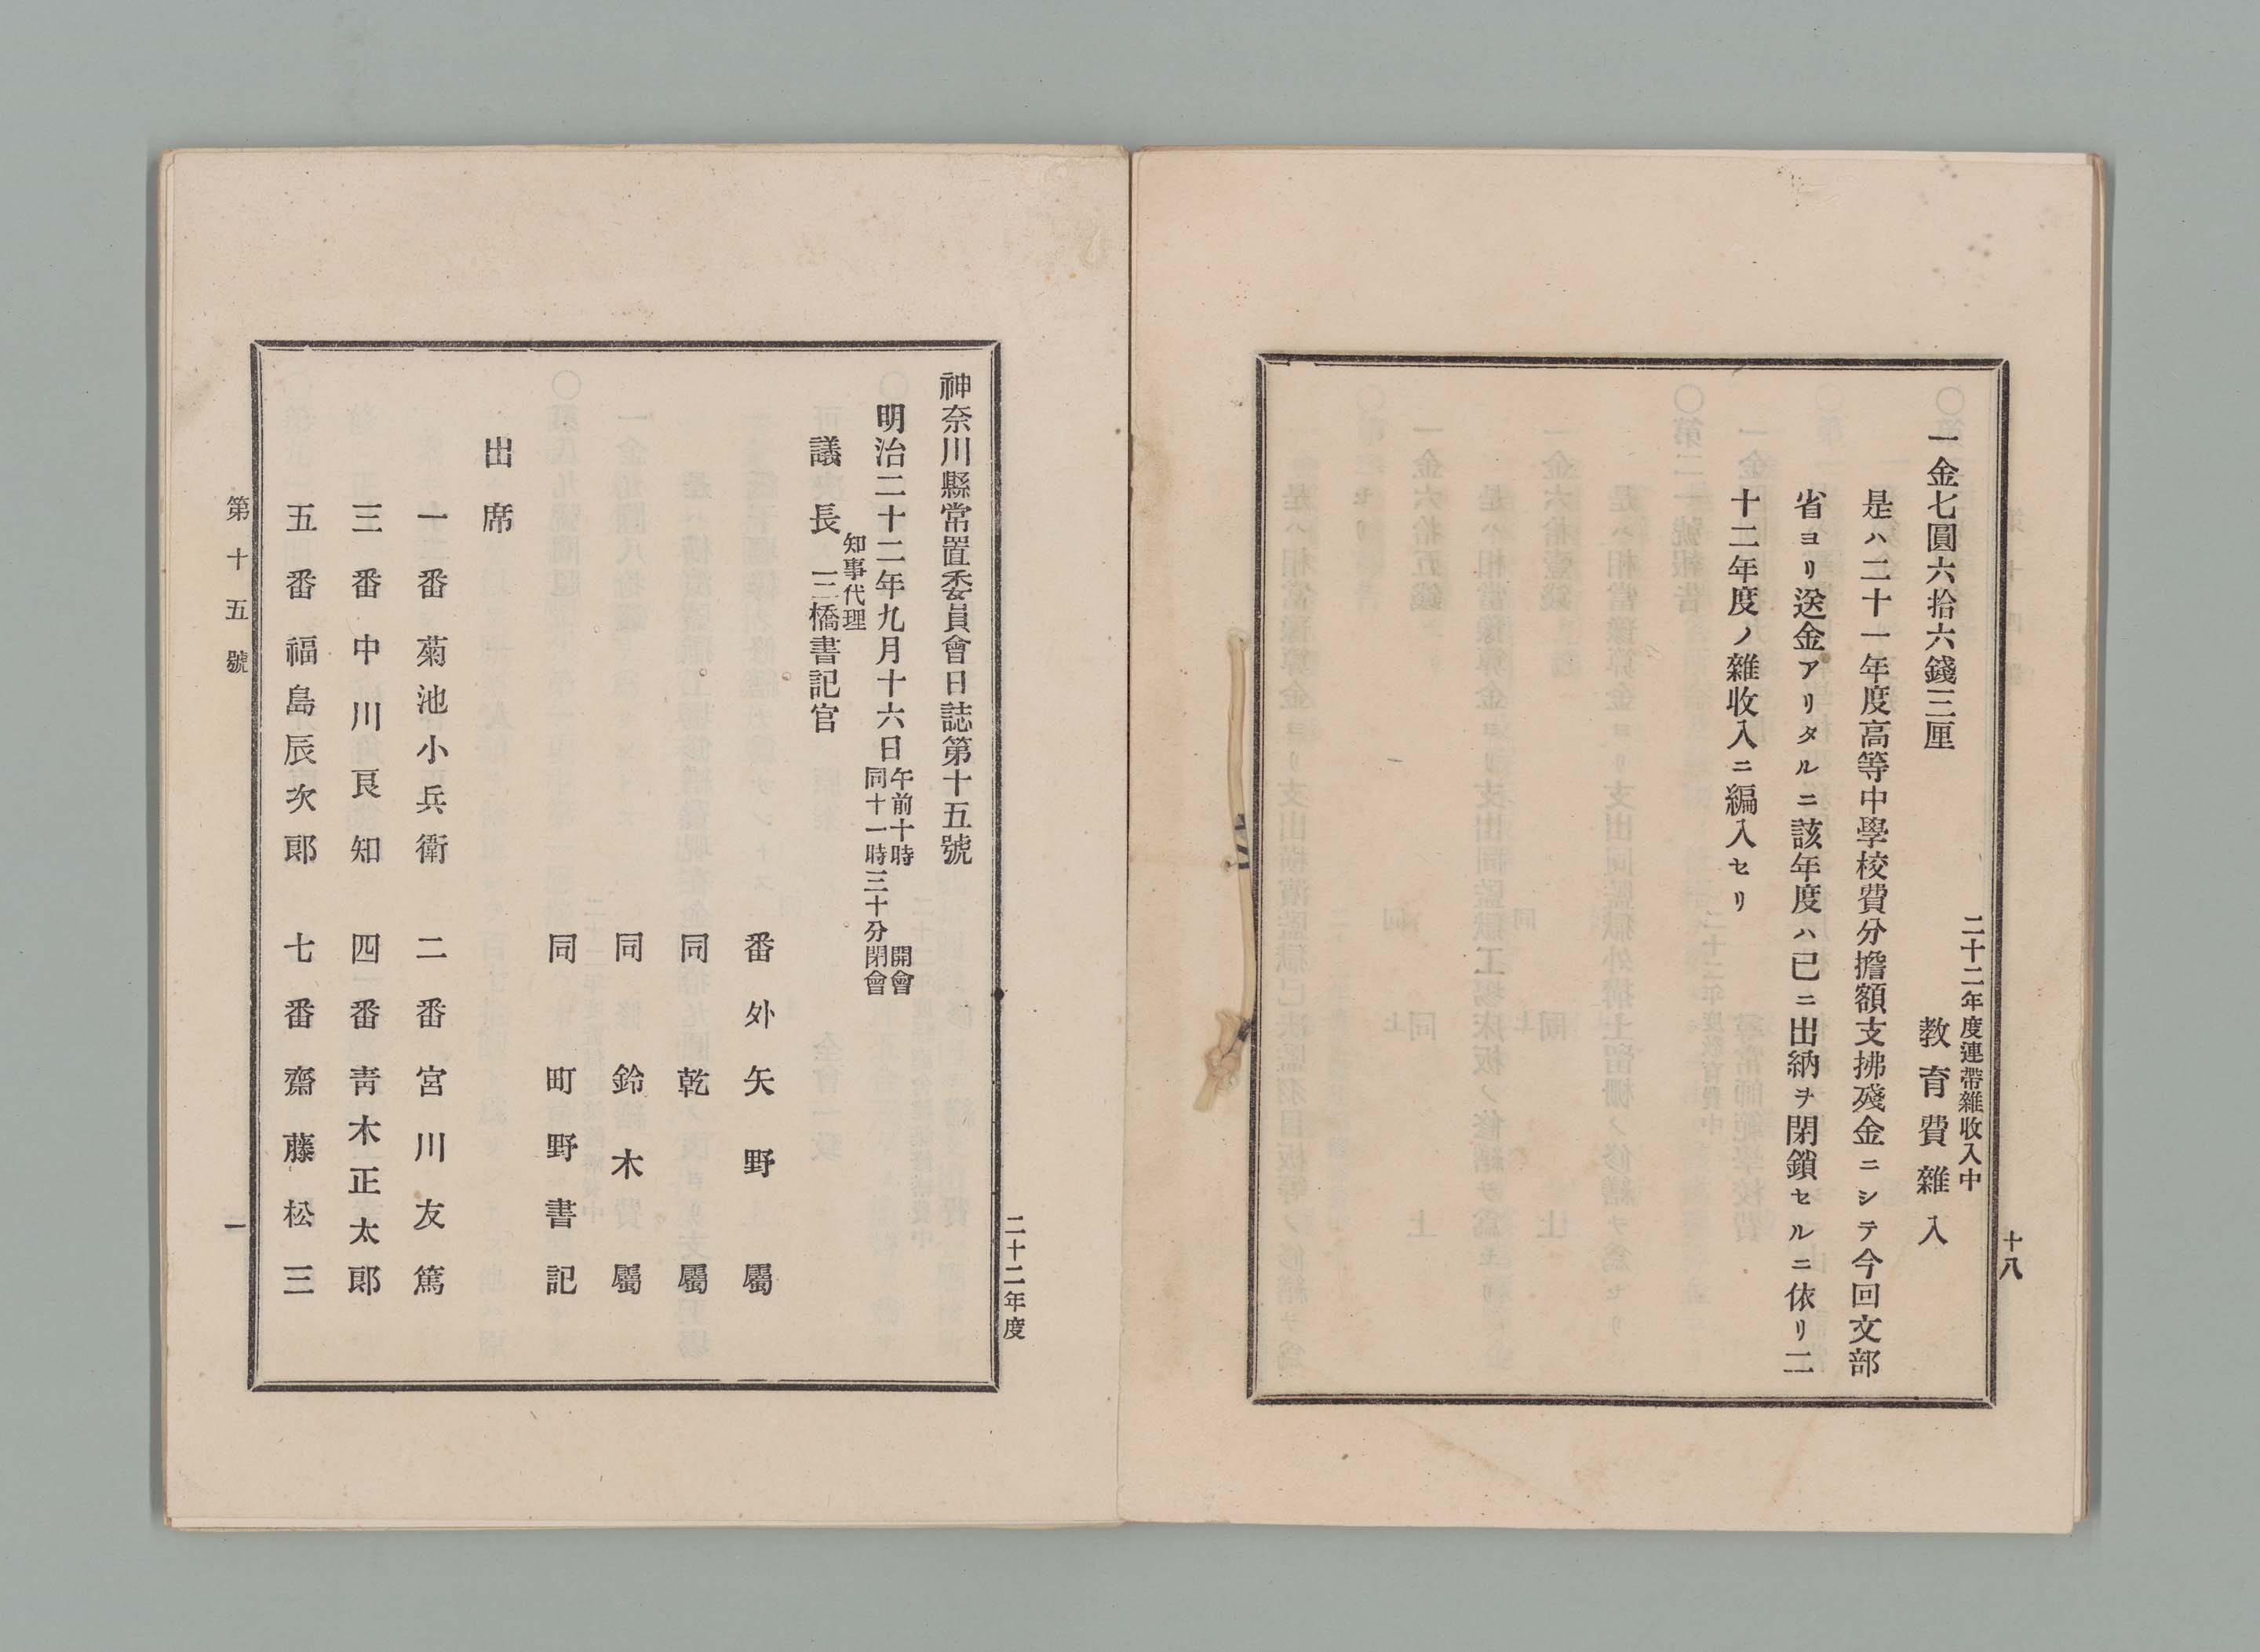 十八
二十二年度連帶雜收入中
一金七圓六拾六錢三厘 敎育費雜入
是ハ二十一年度高等中學校費分擔額支拂殘金ニシテ今回文部
省ヨリ送金アリタルニ該年度ハ已ニ出納ヲ閉鎖セルニ依リ二
十二年度ノ雜收入ニ編入セリ
二十二年度
神奈川縣常置委員會日誌第十五號
明治二十二年九月十六日午前十時開會
同十一時三十分閉會
知事代理
議長 二橋書記官
番外矢野屬
同乾屬
同鈴木屬
同町野書記
出席
一番菊池小兵衛 二番宮川友篤
三番中川良知 四番靑木正太郎
五番福島辰次郎 七番齋藤松三
第十五號
一